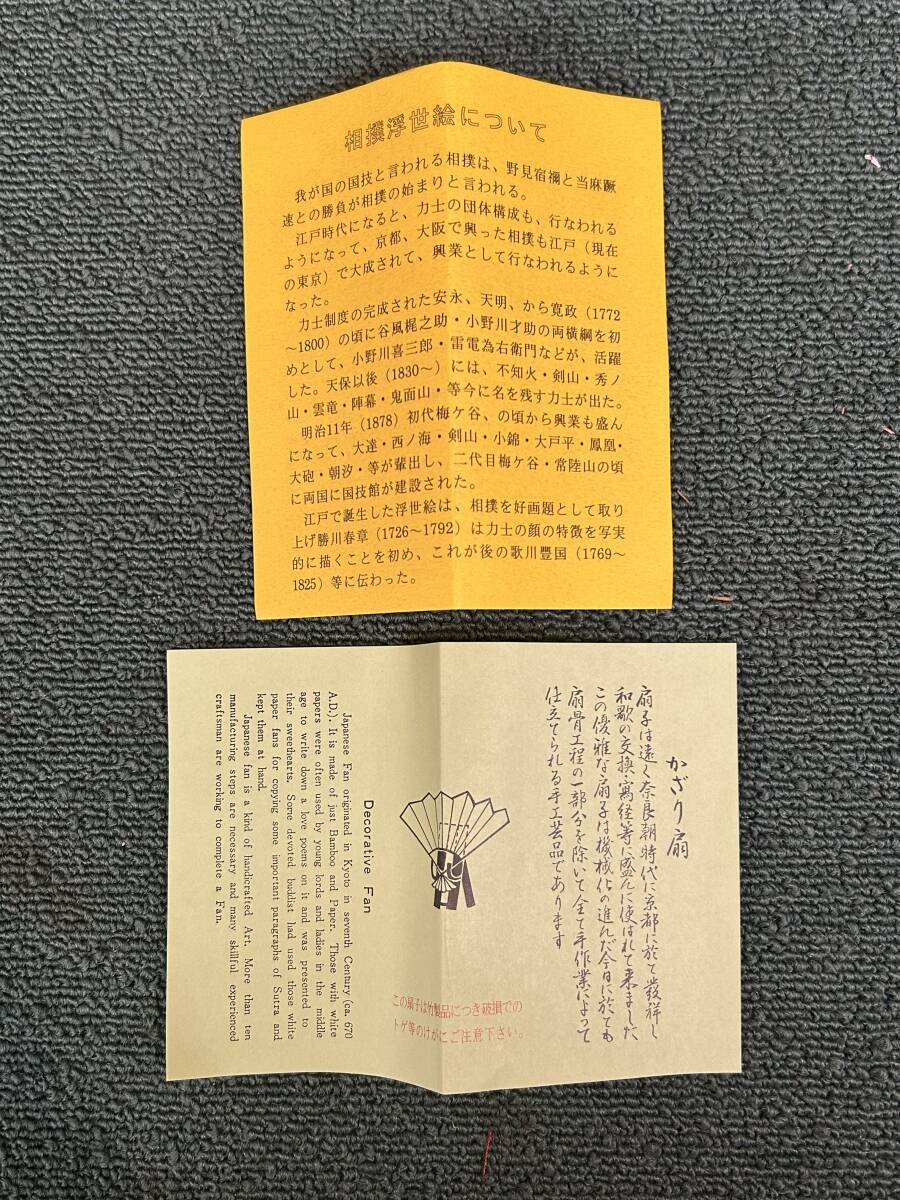 相撲浮世絵について
我が国の国技と言われる相撲は、野見宿禰と当麻蹶
速との勝負が相撲の始まりと言われる。
江戸時代になると、力士の団体構成も、行なわれる
ようになって、京都、大阪で興った相撲も江戸（現在
の東京）で大成されて、興業として行なわれるように
なった。
力士制度の完成された安永、天明、から寛政（1772
～1800）の頃に谷風梶之助・小野川才助の両横綱を初
めとして、小野川喜三郎・雷電為右衛門などが、活躍
した。天保以後（1830～）には、不知火・剣山・秀ノ
山・雲竜・陣幕・鬼面山・等今に名を残す力士が出た。
明治11年（1878）初代梅ケ谷、の頃から興業も盛ん
になって、大達・西ノ海・剣山・小錦・大戸平・鳳凰・
大砲・朝汐・等が輩出し、二代目梅ケ谷・常陸山の頃
に両国に国技館が建設された。
江戸で誕生した浮世絵は、相撲を好画題として取り
上げ勝川春章（1726～1792）は力士の顔の特徴を写実
的に描くことを初め、これが後の歌川豊国（1769～
1825）等に伝わった。
かざり扇
扇子は遠く奈良朝時代に京都に於て発祥し
和歌の交換、写経等に盛んに使はれて来ました
この優雅な扇子は機械化の進んだ今日に於ても
扇骨工程の一部分を除いて全て手作業によって
仕立てられる手工芸品であります
この扇子は竹製品につき破損での
トゲ等のけがにご注意下さい。
Decorative Fan
Japanese Fan originated in Kyoto in seventh Century (ca. 670
A.D.). It is made of just Bamboo and Paper. Those with white
papers were often used by young lords and ladies in the middle
age to write down a love poems on it and was presented to
their sweethearts. Some devoted buddist had used those white
paper fans for copying some important paragraphs of Sutra and
kept them at hand.
Japanese fan is a kind of handicrafted Art. More than ten
manufacturing steps are necessary and many skillful experienced
craftsman are working to complete a Fan.